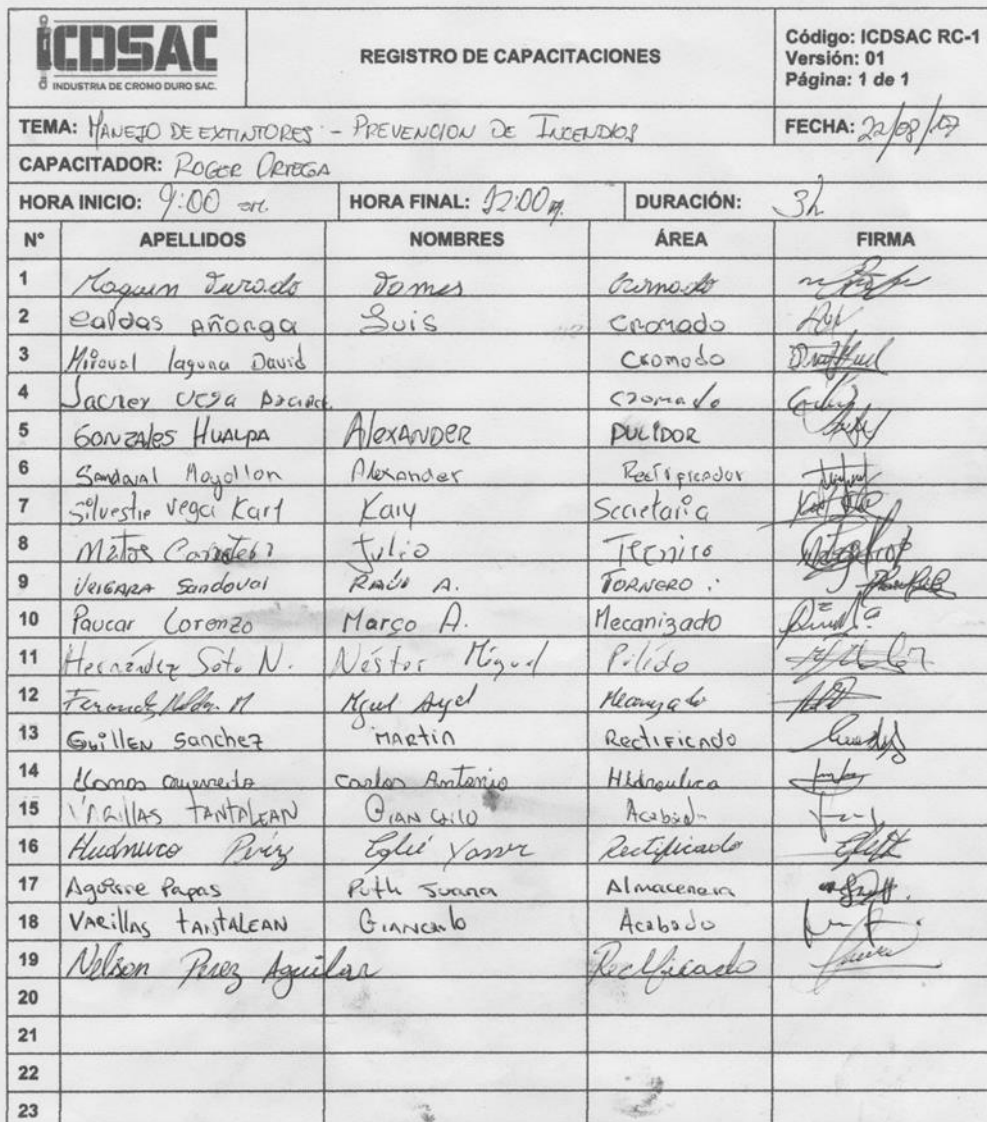 ICDSAC
INDUSTRIA DE CROMO DURO SAC.
REGISTRO DE CAPACITACIONES
Código: ICDSAC RC-1
Versión: 01
Página: 1 de 1
TEMA: MANEJO DE EXTINTORES - PREVENCION DE INCENDIOS
FECHA: 22/08/17
CAPACITADOR: ROGER ORTEGA
HORA INICIO: 9:00 am. HORA FINAL: 12:00 m. DURACIÓN: 3h
N° APELLIDOS NOMBRES ÁREA FIRMA
1
2 Caldas Añorga Luis Cromado
3 laguna David Cromado
4 cromado
5 GONZALES HUALPA AlexANDER PULIDOR
6 Sandoval Mogollon Alexander Rectificador
7 Silvestre Vega Kary Kary Secretaria
8 Julio Tecnico
9 VERGARA Sandoval RAÚL A. TORNERO
10 Paucar Lorenzo Marco A. Mecanizado
11 Hernández Soto N. Néstor Miguel Pulido
12
13 GuillEN Sanchez MARTIN RectIFICADO
14 Carlos Antonio Hidraulica
15 VARillAS TANTALEAN GIAN Acabado
16 Rectificado
17 Aguirre Papas Ruth Juana Almacenera
18 VARillAS TANTALEAN GIANCARlo Acabado
19 Nelson Perez Aguilar Rectificado
20
21
22
23